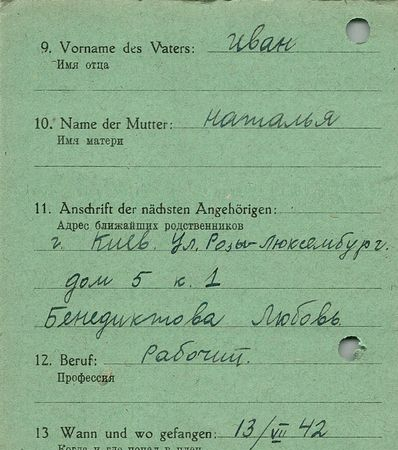 9. Vorname des Vaters: Иван
Имя отца
10. Name der Mutter: Наталья
Имя матери
11. Anschrift der nächsten Angehörigen:
Адрес ближайших родственников
г. Киев. Ул. Розы-Люксембург.
дом 5 к. 1
Бенедиктова Любовь
12. Beruf: Рабочий.
Профессия
13 Wann und wo gefangen: 13/VII 42
Когда и где попал в плен